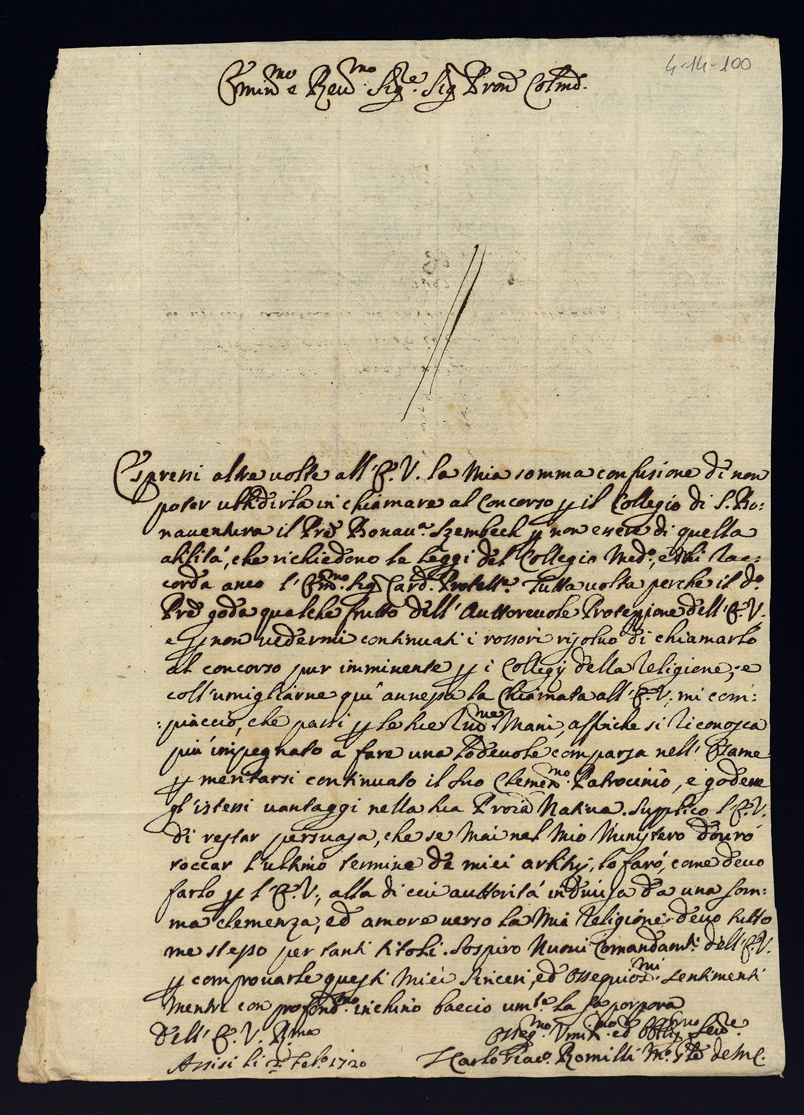 4-14-100
Emin.mo e Reu.mo Sig.e Sig Pron Colmo.
Espressi altre uolte all'E.V. la mia somma confusione di non
poter ubbidirla in chiamare al Concorso p il Collegio di S. Bo:
nauentura il Pre Bonau.a Szembech p non essere di quella
abilità, che richiedono le Leggi del Collegio Med.o, e
corda anco l'Em.mo Sig Card. Protett.e Tutta uolta perche il do
Pre goda qualche frutto dell'Auttoreuole Protezzione dell'E.V.
e p non uedermi continuati i rossori risoluo di chiamarlo
al concorso pur imminente p i Collegij della Religione; e
coll'umigliarne qui annessa la Chiamata all'E.V., mi com:
:piaccio, che passi p le sue Mani, affinche si riconosca
più impegnato à fare una lodeuole comparsa nell'Esame
p meritarsi continuato il suo Clemen.mo Patrocinio, e godere
gl'istessi uantaggi nella sua Prou.a Natiua. Supplico l'E.V.
di restar persuasa, che se mai nel mio Ministero dourò
toccar l'ultimo termine de miei arbitrij, lo farò, come deuo
farlo p l'E.V., alla di cui auttorità indiuisa da una som:
ma clemenza, ed amore uerso la Mia Religione deuo tutto
me stesso per tanti titoli. Sospiro Nuoui Comandam.ti dell'E.V.
p comprouarle questi Miei sinceri, ed ossequios.mi sentimenti
mentre con profond.mo inchino baccio um.te la porpora
Dell'E.V. R.ma
Osseq.mo Um.mo ed Obblig Seruo
Assisi li Feb.o 1720
F Carlo Giac.o Romilli M.o G.le de M.C.